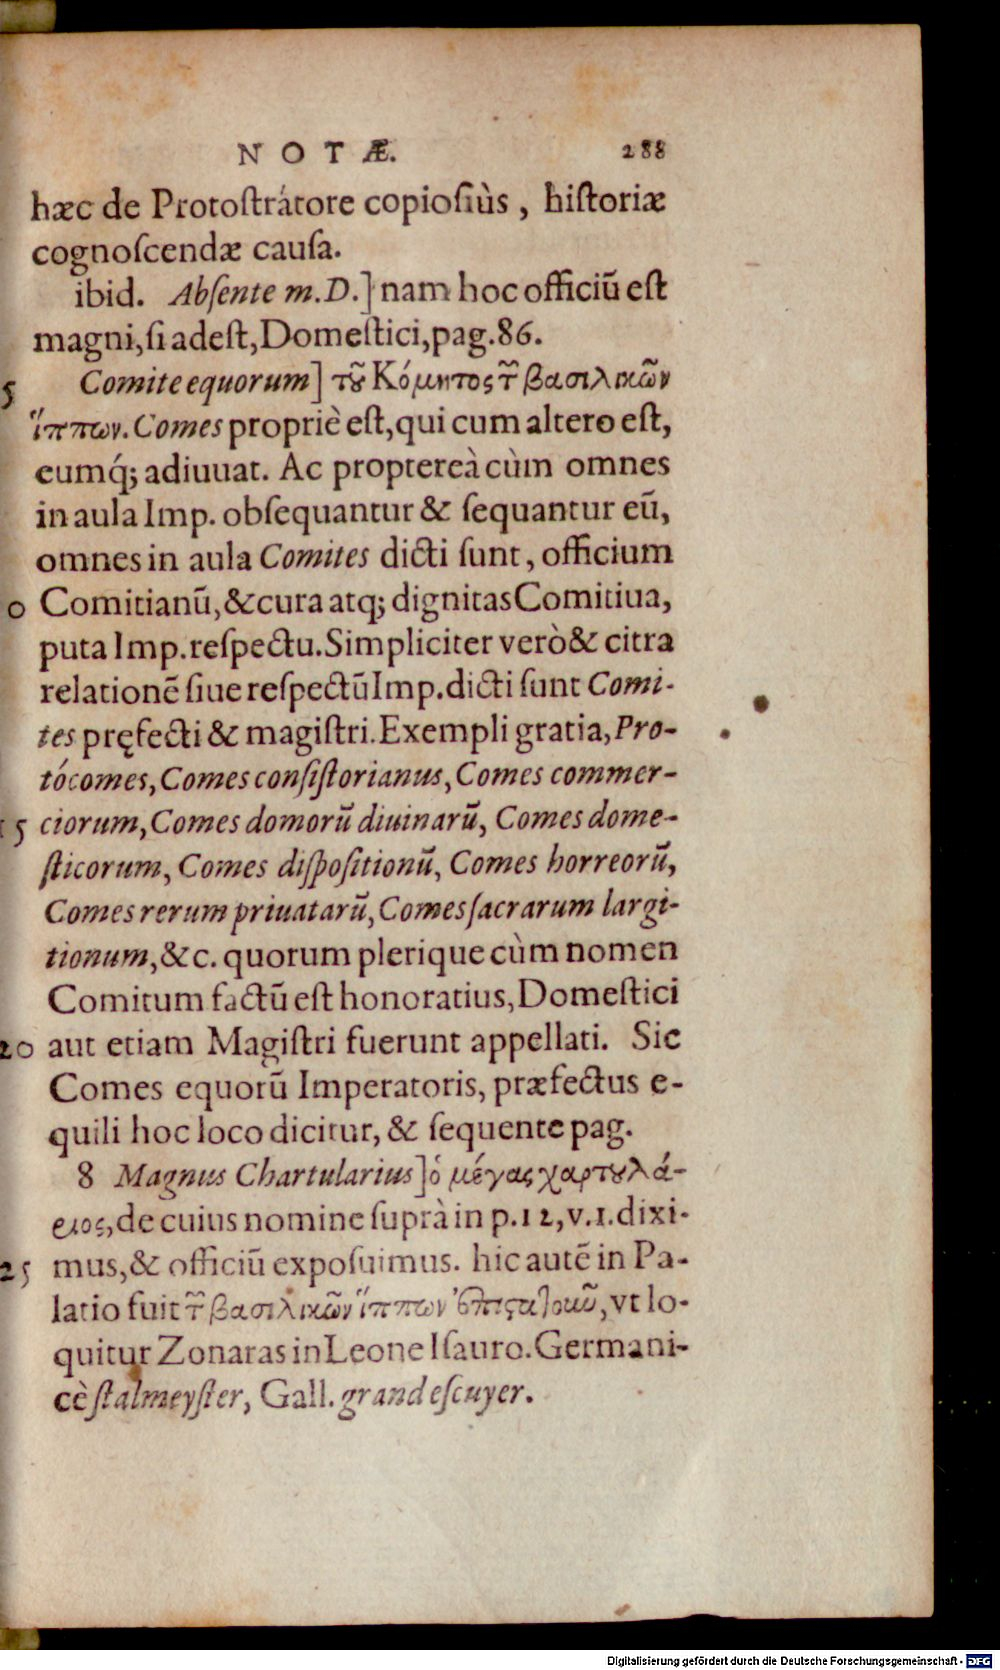 NOTÆ. 288
hæc de Protostrátore copiosiùs, historiæ
cognoscendæ causa.
ibid. Absente m. D.] nam hoc officiũ est
magni, si adest, Domestici, pag. 86.
5 Comite equorum] τȣ͂ Κόμητος τ῀ βασιλικῶν
ἵππων. Comes propriè est, qui cum altero est,
eumq́; adiuuat. Ac proptereà cùm omnes
in aula Imp. obsequantur & sequantur eũ,
omnes in aula Comites dicti sunt, officium
0 Comitianũ, & cura atq; dignitas Comitiua,
puta Imp. respectu. Simpliciter verò & citra
relationẽ siue respectũ Imp. dicti sunt Comi-
tes pręfecti & magistri. Exempli gratia, Pro-
tócomes, Comes consistorianus, Comes commer-
15 ciorum, Comes domorũ diuinarũ, Comes dome-
sticorum, Comes dispositionũ, Comes horreorũ,
Comes rerum priuatarũ, Comes sacrarum largi-
tionum, &c. quorum plerique cùm nomen
Comitum factũ est honoratius, Domestici
20 aut etiam Magistri fuerunt appellati. Sic
Comes equorũ Imperatoris, præfectus e-
quili hoc loco dicitur, & sequente pag.
8 Magnus Chartularius] ὁ μέγας χαρτȣλά-
ριος, de cuius nomine suprà in p. 12, v. 1. dixi-
25 mus, & officiũ exposuimus. hic autẽ in Pa-
latio fuit τ῀ βασιλικῶν ἵππων , vt lo-
quitur Zonaras in Leone Isauro. Germani-
cè stalmeyster, Gall. grand escuyer.
Digitalisierung gefördert durch die Deutsche Forschungsgemeinschaft - DFG